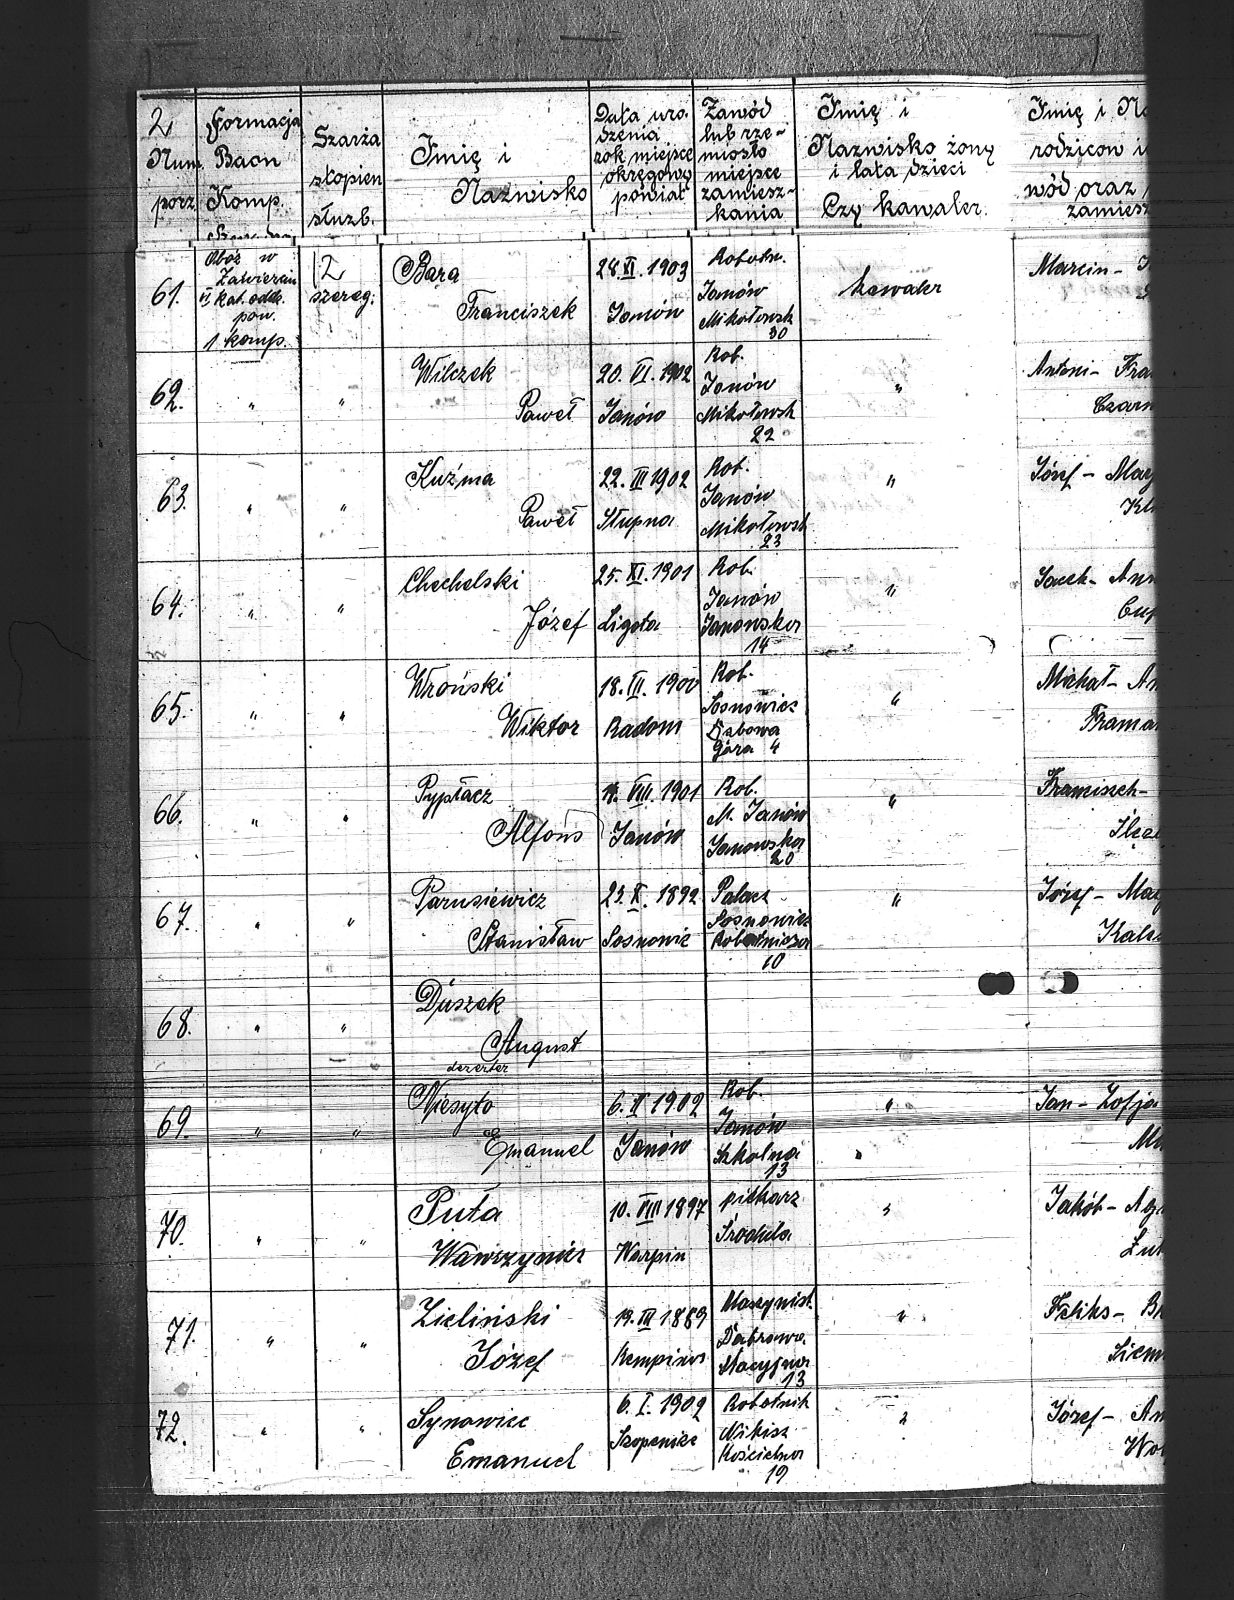 2
Num.
porz
Formacja
Baon
Komp.
Szarża
stopien
służb.
Imię i
Nazwisko
Data uro-
dzenia
rok miejsce
okręgowy
powiat
Zawód
lub rze-
miosło
miejsce
zamiesz-
kania
Imię i
Nazwisko żony
i lata dzieci
Czy kawaler.
Imię i Na
rodziców i
wód oraz
zamiesz
61.
Obóz w
Zawierciu
kat. oddz.
pow.
1 komp.
12
szereg.
Bara
Franciszek
28. VI. 1903
Janów
Robotn.
Janów
Mikołowsk
30
kawaler
Marcin -
62.
" "
Wilczek
Paweł
20. VI. 1902
Janów
Rob.
Janów
Mikołowsk
22
"
Antoni - Fra
Czarn
63.
" "
Kuźma
Paweł
22. III 1902
Słupna
Rob.
Janów
Mikołowsk
23
"
Józef - Mary
64.
" "
Chechelski
Józef
25. XI. 1901
Ligota
Rob.
Janów
Janowska
14
"
Jacek - Ann
65.
" "
Wroński
Wiktor
18. III. 1900
Radom
Rob.
Sosnowiec
Dębowa
Góra 4
"
Michał - An
66.
" "
Pypłacz
Alfons
VIII. 1901
Janów
Rob.
M. Janów
Janowska
20
"
Franciszek -
67.
" "
Parusiewicz
Stanisław
23. X. 1892
Sosnowic
Palacz
Sosnowiec
Robotnicza
10
"
Józef - Mary
68.
" "
Duszek
August
dezerter
69.
" "
Niesyto
Emanuel
6. X 1902
Janów
Rob.
Janów
Szkolna
13
"
Jan - Zofja
70.
" "
Puta
Wawrzyniec
10. VIII 1897
Warpin
piekarz
Środula
"
Jakób - Aga
71.
" "
Zieliński
Józef
19. III 1889
Kempina
Maszynist.
Dąbrowa
Stacyjna
13
"
Feliks -
72.
" "
Synowiec
Emanuel
6. I. 1902
Szopenice
Robotnik
Nikisz
Kościelna
19
"
Józef - An